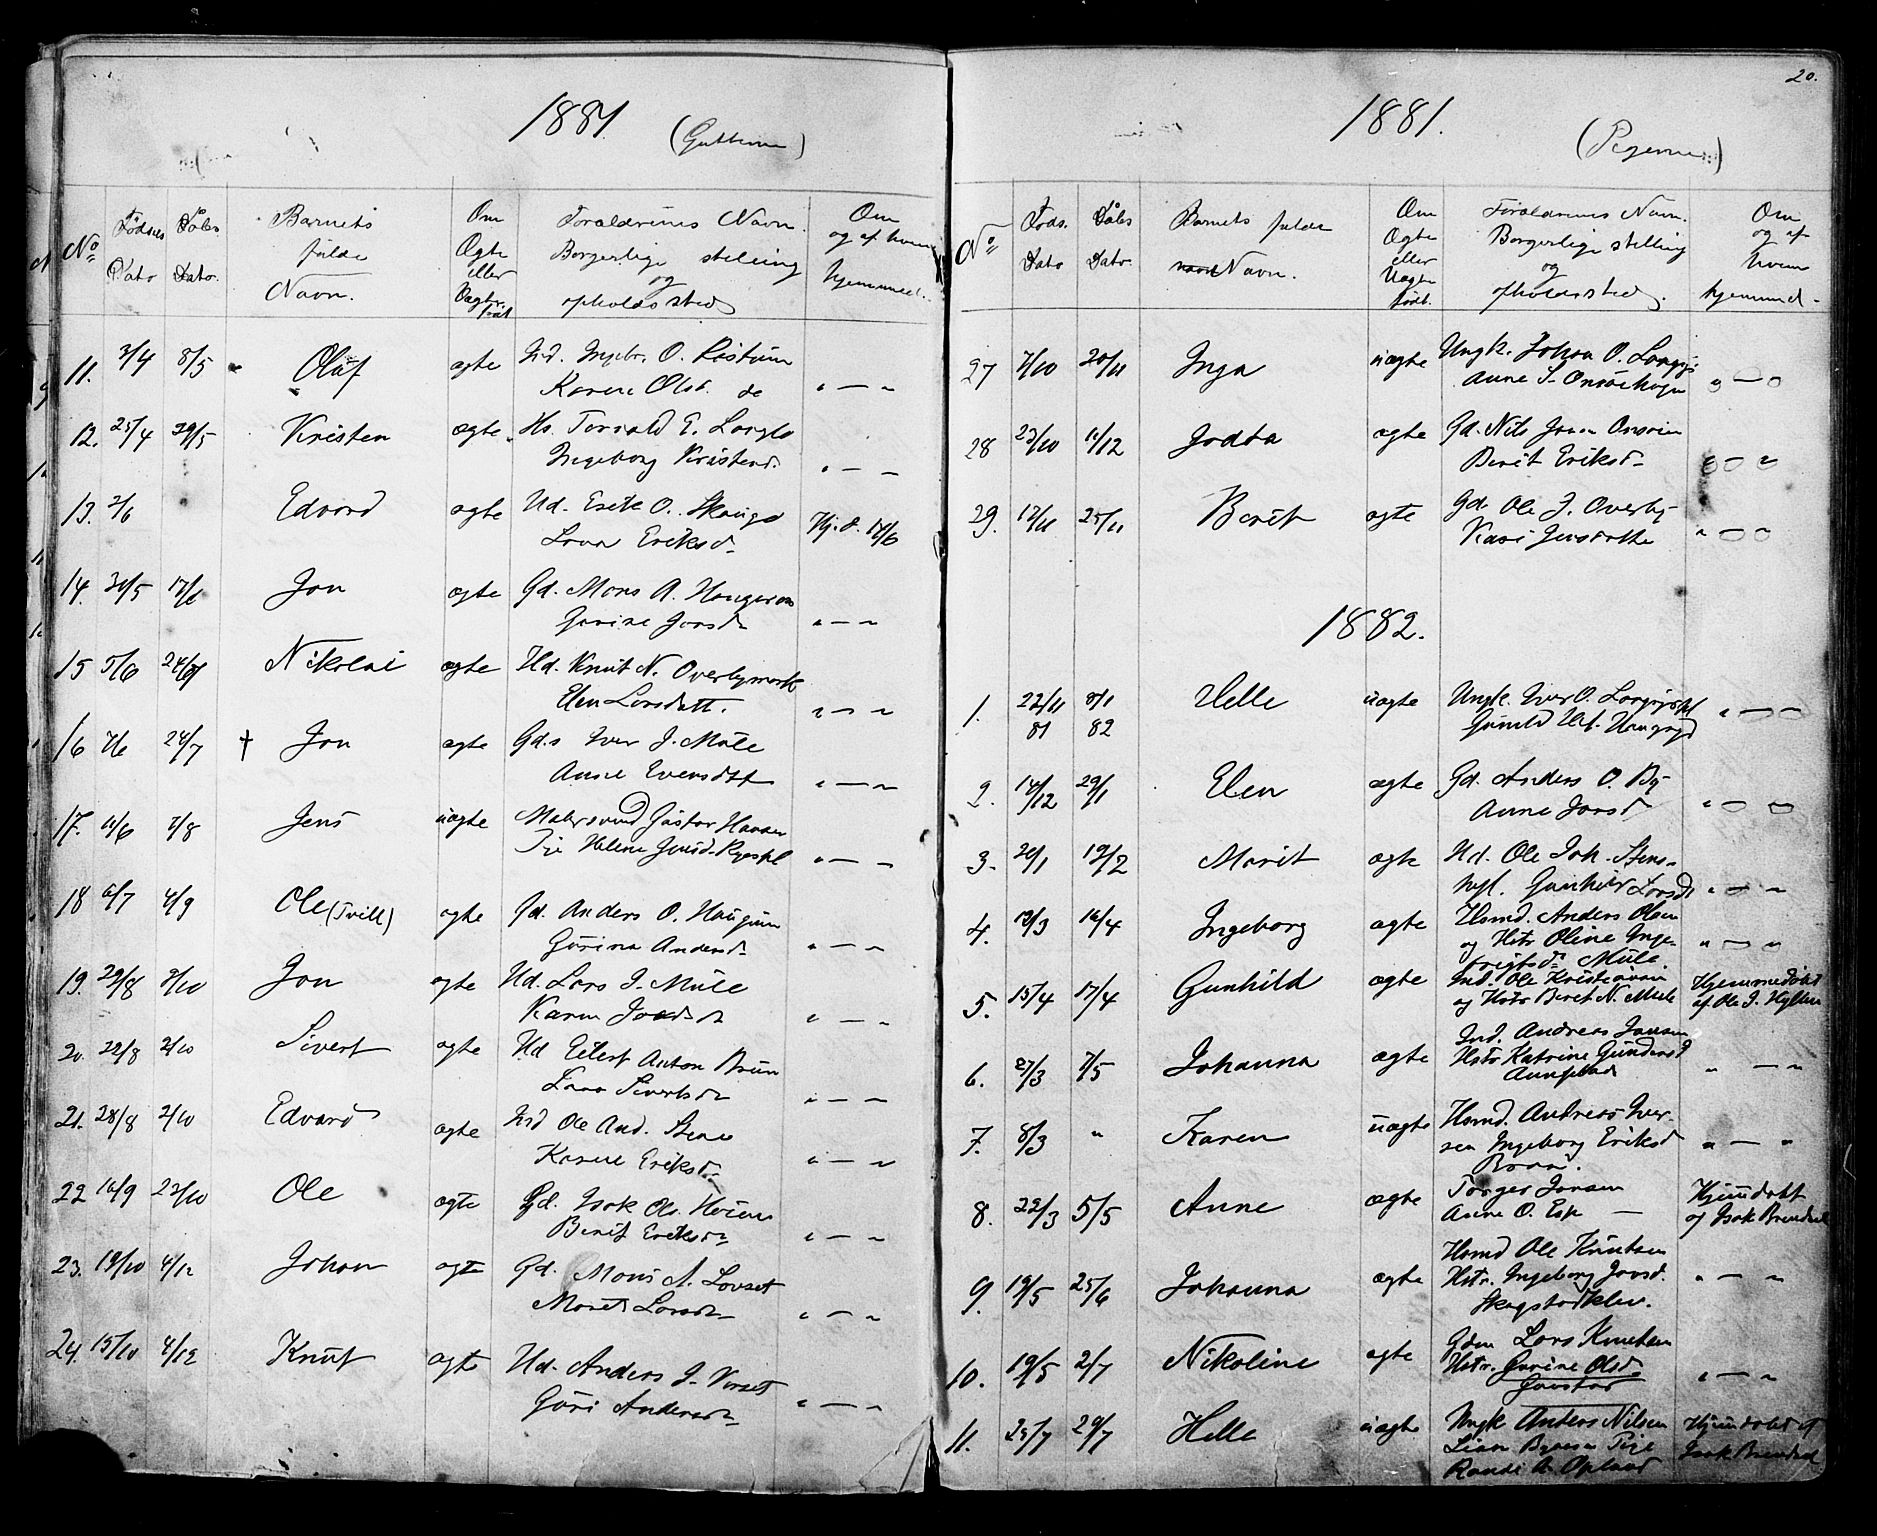 20.
1881
(Gutterne)
No
Fødsels Dato
Daabs Dato.
Barnets fulde Navn.
Om Ægte eller Uægte født
Forældrenes Navn Borgerlige stilling og opholdssted
Om og af hvem hjemmed.
11. 3/4 8/5 Olaf ægte Ind. Ingebr. O. Ristum
Karen Olsd. do " — "
12. 25/4 29/5 Kristen ægte Hs. Torvald E.
Ingeborg Kristensd. " — "
13. 2/6 Edvard ægte Hd. Erik O. Skaugs
Lava Eriksd. Hj. d. 12/6
14. 31/5 17/6 Jon ægte Gd. Mons A. Haugum
Gurine Jonsd " — "
15 5/6 24/7 Nikolai ægte Hd. Knut N. Overbymark
Elen Larsdatt. " — "
16 7/6 24/7 † Jon ægte Gd.s Iver J. Mule
Anne Evensdatt " — "
17. 11/6 7/8 Jens uægte Malersvend Gustav Hansen
Pige Helene Jensd. " — "
18 6/7 4/9 Ole (Tvill) ægte Gd. Anders O. Haugum
Gurina Andersd. " — "
19. 29/8 2/10 Jon ægte Hd. Lars J. Mule
Karen " — "
20. 22/8 2/10 Sivert ægte Hd Eilert Anton Bruun
Lava Sivertsd. " — "
21. 28/8 2/10 Edvard ægte Ind Ole And. Stene
Karen Eriksd. " — "
22 16/9 23/10 Ole ægte Gd. Isak Ols. Høien
Berit Eriksd. " — "
23. 19/10 4/12 Johan ægte Gd. Mons A. Lovset
Marit Larsd. " — "
24. 15/10 4/12 Knut ægte Hd. Anders J. Vorset
Guri Andersd. " — "
1881.
(Pigerne)
No
Føds. Dato
Daabs Dato.
Barnets fulde Navn.
Om Ægte eller Uægte født.
Forældrenes Navn. Borgerlige stilling og opholdssted.
Om og af hvem hjemmed.
27 7/10 20/11 Inga uægte Ungk. Johan O.
Anne S. " — "
28 23/10 11/12 Jodta ægte Gd. Nils Jonsen
Berit Eriksd. " — "
29. 12/11 25/11 Berit ægte Gd. Ole J. Overby
Kari Jensdatte " — "
1882.
1. 22/11 81 8/1 82 Helle uægte Ungk. Iver O.
Gunild " — "
2. 14/12 29/1 Elen ægte Gd. Anders O. By
Anne Jonsd " — "
3. 20/1 19/2 Marit ægte Hd. Ole Joh. Stens-
hyl. Gunhild Larsd. " — "
4. 19/3 16/4 Ingeborg ægte Hsmd. Anders Olsen
og Hstr Oline Inge-
brigtsd. Mule " — "
5. 15/4 17/4 Gunhild ægte Ind. Ole Kristiansen
og Hstr Beret N. Mule Hjemmedøbt af Ole J. Hyllen
6. 27/3 7/5 Johanna ægte Ind. Andreas Jansen
Hstr Katrine Gundersd " — "
7. 8/3 " Karen uægte Hsmd. Andreas Iver-
sen Ingeborg Eriksd " — "
8. 22/3 5/5 Anne ægte Torger Jonsen
Anne O. Esp — Hjemdøbt af Isak Brendsel
9. 19/5 25/6 Johanna ægte Hsmd Ole Knutsen
Hstr. Ingeborg Jonsd.
Skogstadklev. " — "
10. 19/5 2/7 Nikoline ægte Gdm Lars Knutsen
Hstr. Gurine Olsd. " — "
11. 25/7 29/7 Helle uægte Ungk Anders Nilsen
Lian Pige
Randi A. Opland Hjemdøbt af Isak Brendsel